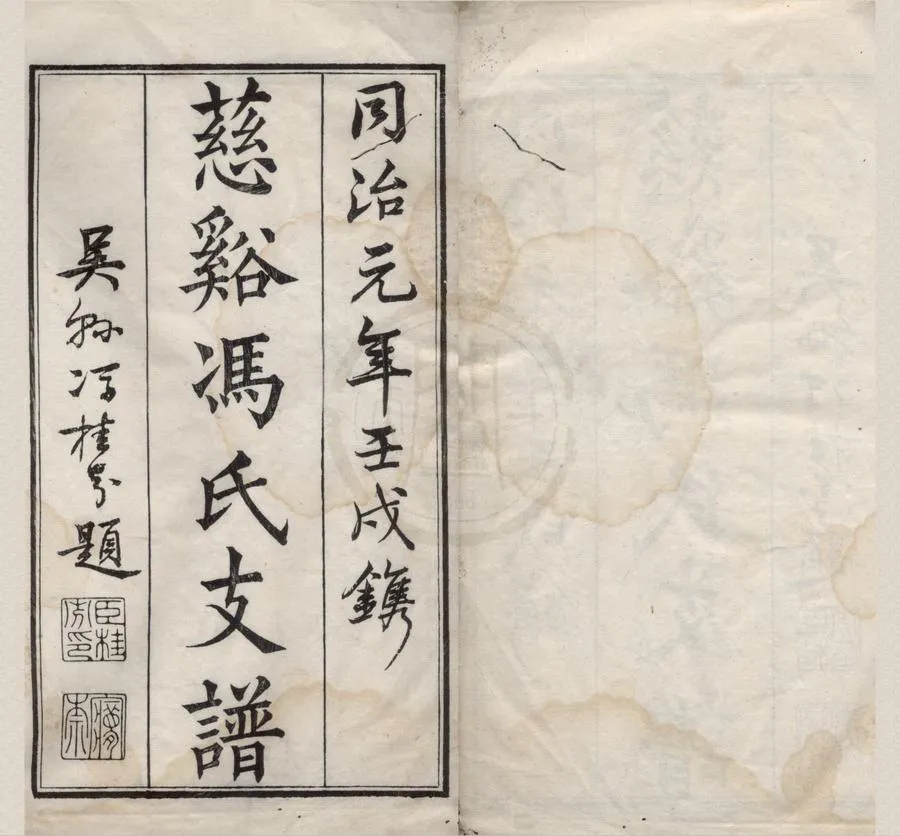 同治元年壬戌鐫
慈谿馮氏支譜
吳縣馮桂芬題
臣桂芬印